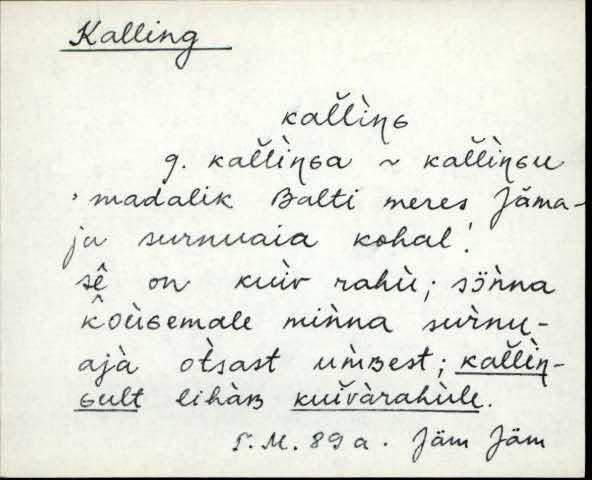 Kalling
kal̆l̆ìŋɢ
g. kal̆l̆ìŋɢa ~ kal̆l̆ìŋɢu
'madalik Balti meres Jäma-
ja surnuaia kohal'.
sê on kuìv rahù; sö̀nna
k̂oùɢemale mìnna sùrnu-
ajà òtsast ùmʙest; kal̆l̆ìŋ-
ɢult lihàʙ kuìvàrahùle.
T.M. 89 a. Jäm Jäm